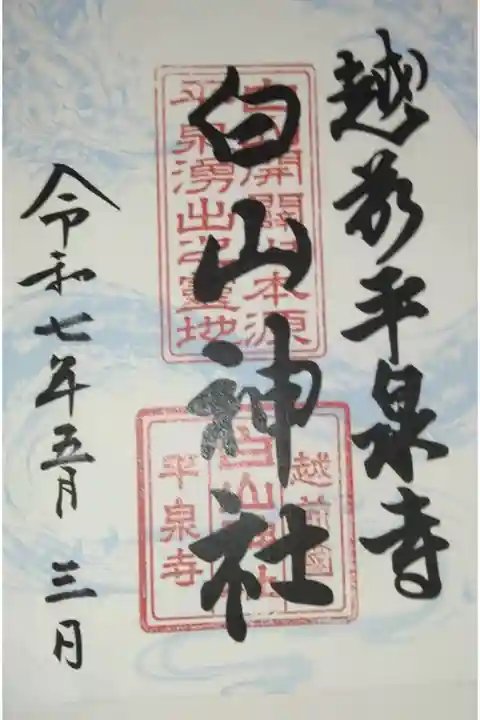 越前平泉寺
白山神社
白山開闢之本源
平泉湧出之霊地
越前國
白山神社
平泉寺
令和七年五月三日